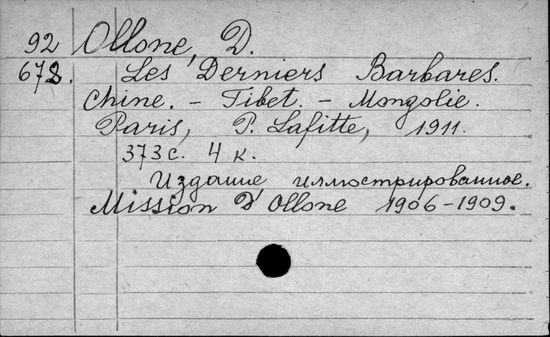 92 Ollone, D.
672. Les Derniers Barbares.
Chine. – Tibet. – Mongolie.
Paris, P. Lafitte, 1911.
373 с. 4 к.
Издание иллюстрированное.
Mission D'Ollone 1906–1909.